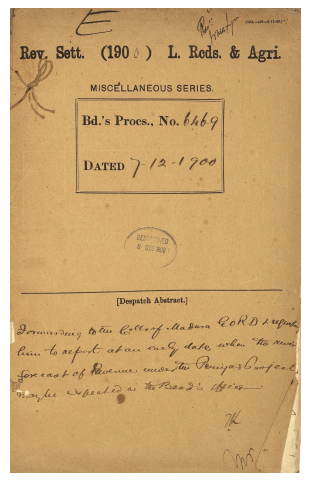 E
Rev. Sett. (1900) L. Rcds. & Agri.
MISCELLANEOUS SERIES.
Bd.'s Procs., No. 6469
DATED 7-12-1900
DESPATCHED
8 DEC 1900
[Despatch Abstract.]
Forwarding to the Collr of Madura G.O.R.D & requesting
him to report at an early date when the revised
forecast of Revenue under the Periyar Project
may be expected in the Board's office